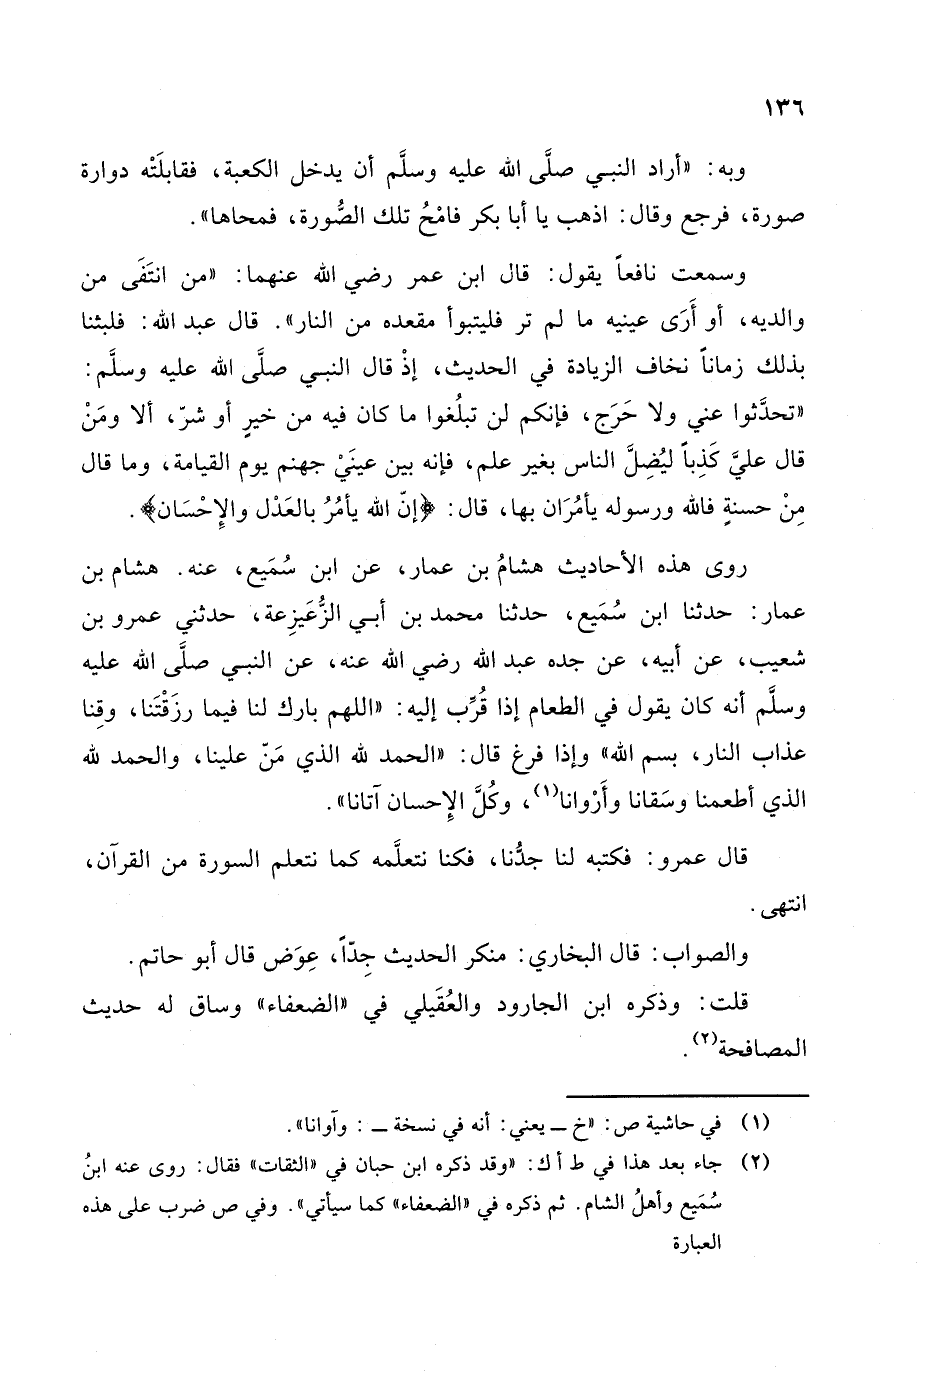 ١٣٦
وبه: «أراد النبي صلَّى الله عليه وسلَّم أن يدخل الكعبة، فقابلَتْه دوارة
صورة، فرجع وقال: اذهب يا أبا بكر فامْحُ تلك الصُّورة، فمحاها».
وسمعت نافعاً يقول: قال ابن عمر رضي الله عنهما: «من انتَفَى من
والديه، أو أَرَى عينيه ما لم تر فليتبوأ مقعده من النار». قال عبد الله: فلبثنا
بذلك زماناً نخاف الزيادة في الحديث، إذْ قال النبي صلَّى الله عليه وسلَّم:
«تحدَّثوا عني ولا حَرَج، فإنكم لن تبلُغوا ما كان فيه من خيرٍ أو شرّ، ألا ومَنْ
قال عليَّ كَذِباً ليُضِلَّ الناس بغير علم، فإنه بين عينَيْ جهنم يوم القيامة، وما قال
مِنْ حسنةٍ فالله ورسوله يأمُرَان بها، قال: ﴿إنّ الله يأمُرُ بالعَدْل والإِحْسَان﴾.
روى هذه الأحاديث هشامُ بن عمار، عن ابن سُمَيع، عنه. هشام بن
عمار: حدثنا ابن سُمَيع، حدثنا محمد بن أبي الزُّعَيزِعة، حدثني عمرو بن
شعيب، عن أبيه، عن جده عبد الله رضي الله عنه، عن النبي صلَّى الله عليه
وسلَّم أنه كان يقول في الطعام إذا قُرِّب إليه: «اللهم بارك لنا فيما رزَقْتَنا، وقِنا
عذاب النار، بسم الله» وإذا فرغ قال: «الحمد لله الذي مَنّ علينا، والحمد لله
الذي أطعمنا وسَقانا وأَرْوانا(١)، وكُلَّ الإِحسان آتانا».
قال عمرو: فكتبه لنا جدُّنا، فكنا نتعلَّمه كما نتعلم السورة من القرآن،
انتهى.
والصواب: قال البخاري: منكر الحديث جِدّاً، عِوَض قال أبو حاتم.
قلت: وذكره ابن الجارود والعُقَيلي في «الضعفاء» وساق له حديث
المصافحة(٢).
(١) في حاشية ص: «خ ــ يعني: أنه في نسخة ــ : وآوانا».
(٢) جاء بعد هذا في ط أ ك: «وقد ذكره ابن حبان في «الثقات» فقال: روى عنه ابنُ
سُمَيع وأهلُ الشام. ثم ذكره في «الضعفاء» كما سيأتي». وفي ص ضرب على هذه
العبارة